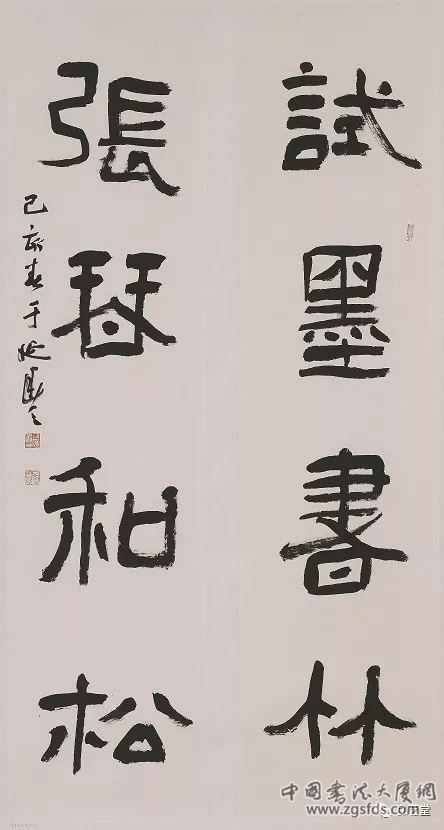 試墨書竹
張琴和松
己亥春于
中国书法大厦网
www.zgsfds.com